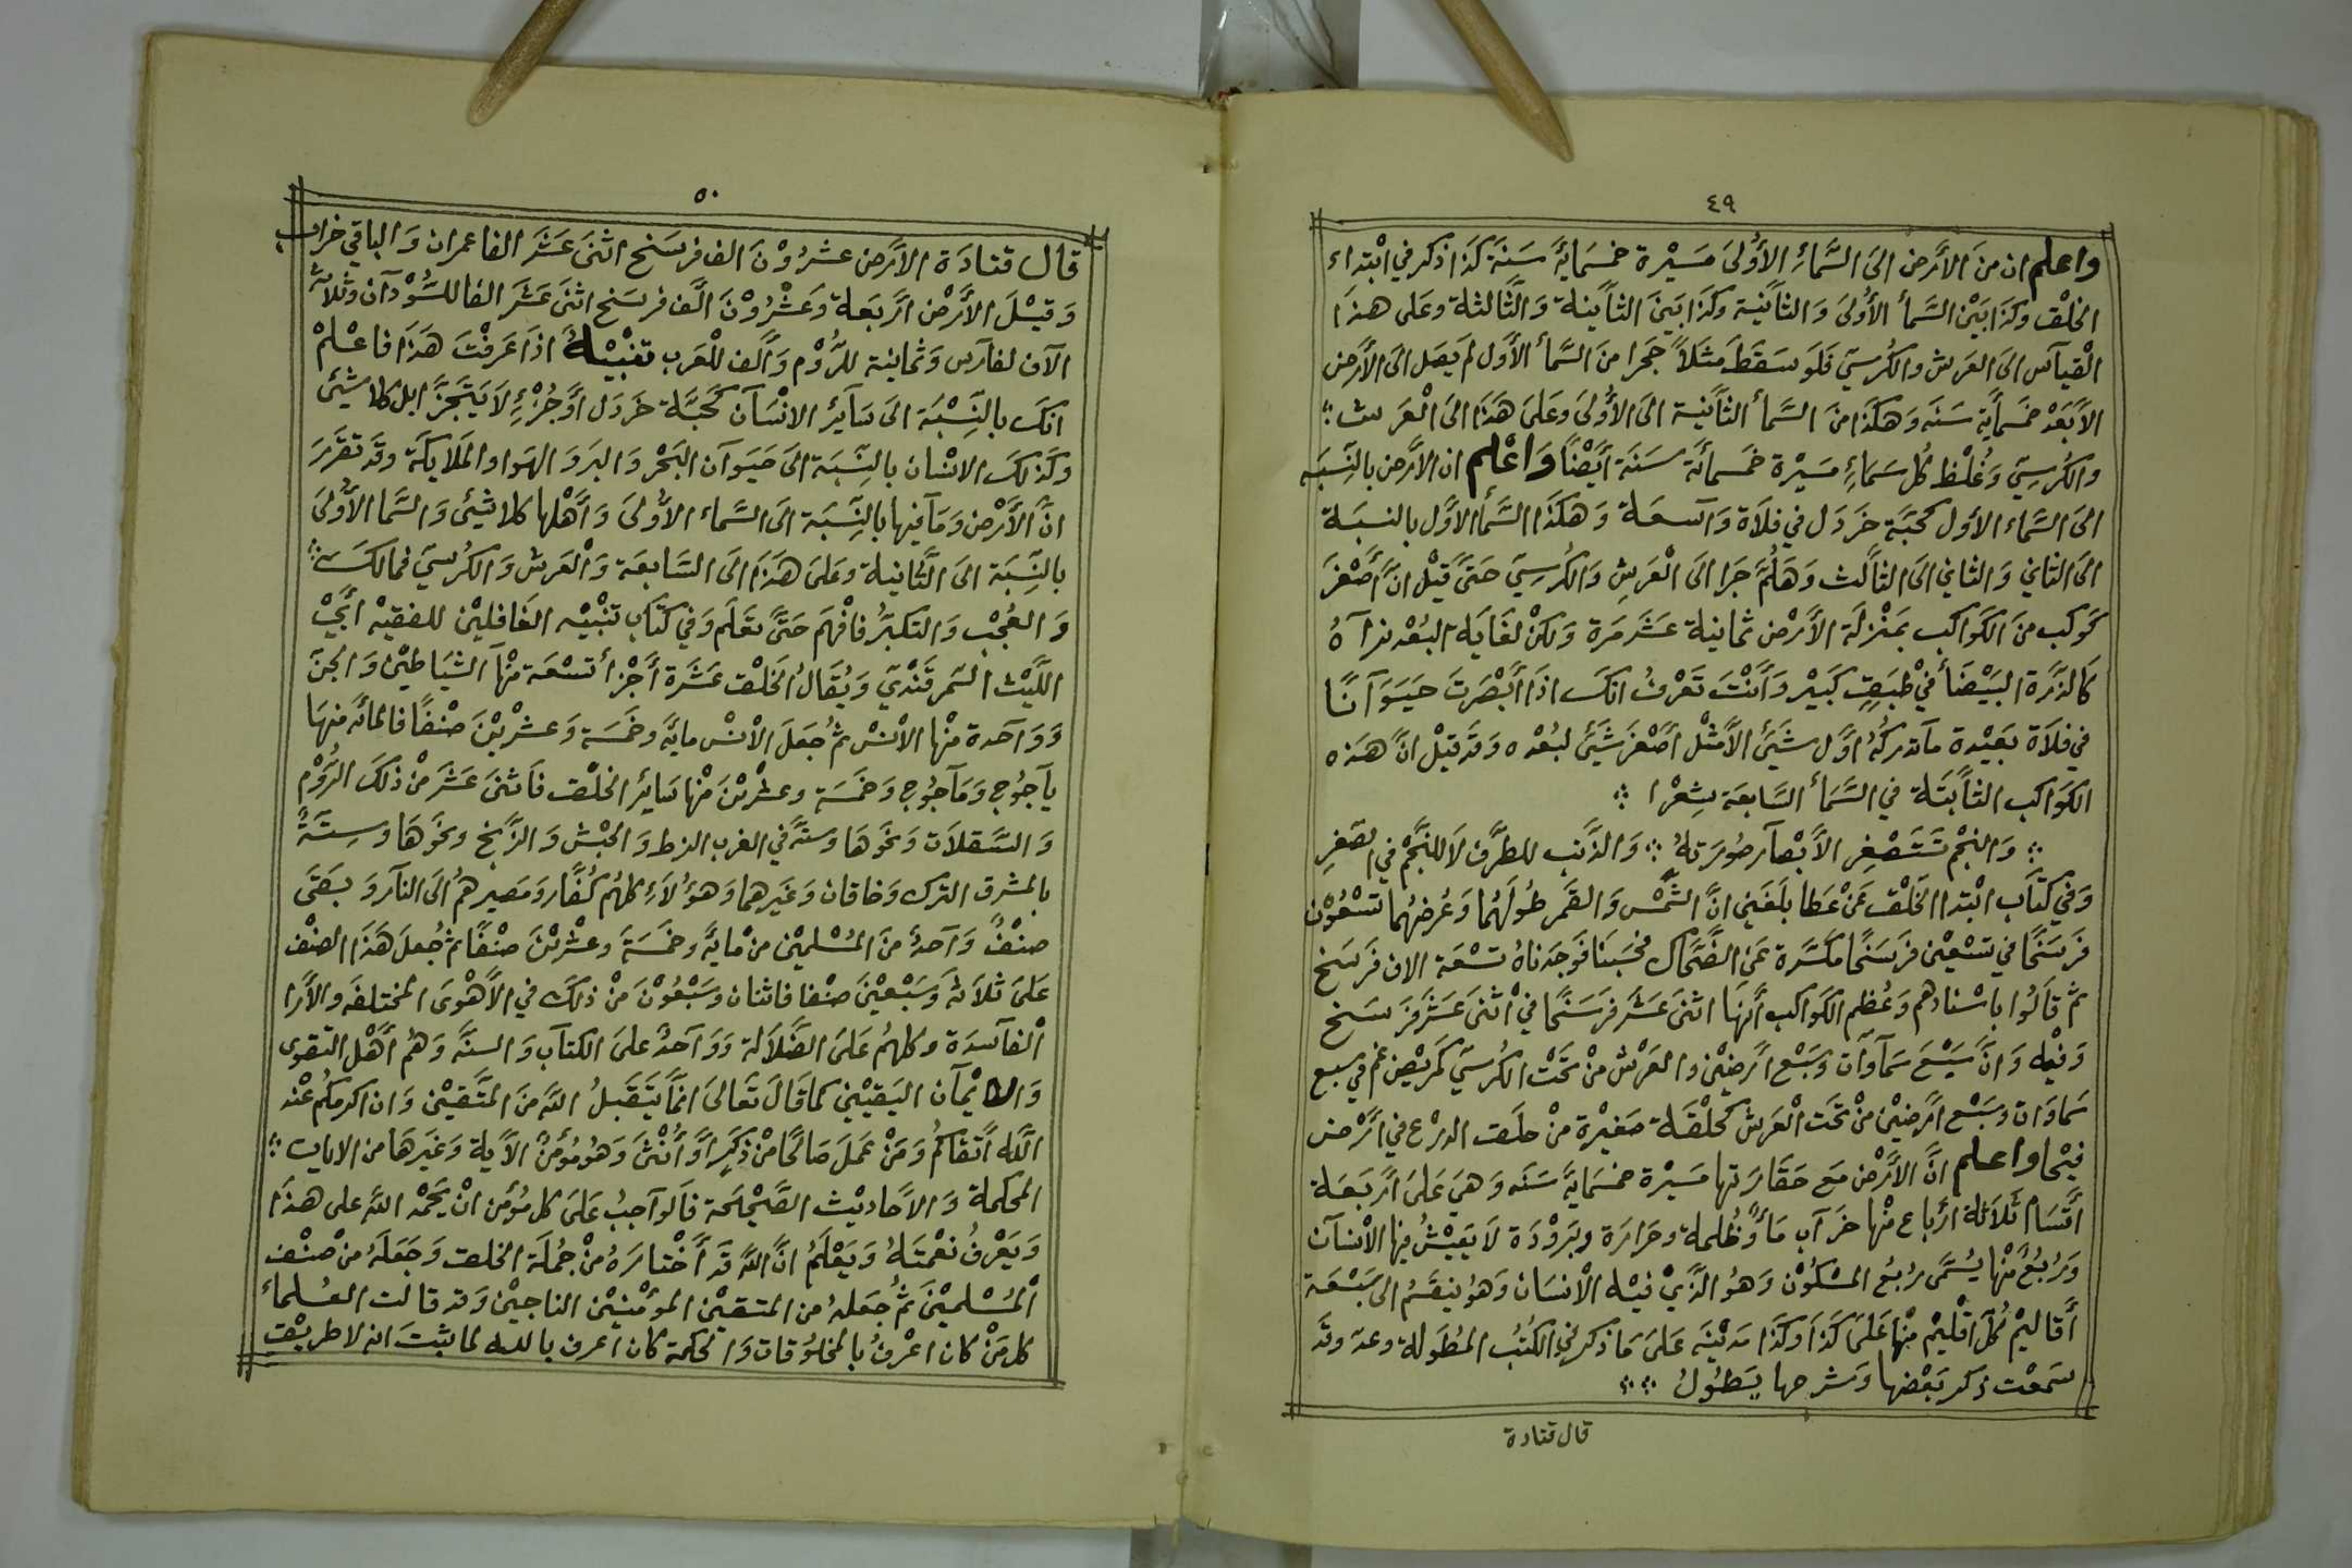 ٤٩
واعلم ان من الأرض الى السَّمأ الأولى مسيرة خمسمائة سنة كذا ذكر في ابتداء
الخلق وكذا بين السمأ الأولى والثانية وكذا بين الثانية والثالثة وعلى هذا
القياس الى العرش والكرسي فلو سقط مثلاً حجرا من السمأ الأول لم يصل الى الأرض
الا بعد خمسمأية سنه وهكذا من السمأ الثانية الى الأولى وعلى هذا الى العرش
والكرسي وغلظ كل سمأ مسيرة خمسمائة سنة أيضًا واعلم ان الأرض بالنسبه
الى السماء الأول كحبة خردل في فلاة واسعة وهكذا السمأ الأول بالنسبة
الى الثاني والثاني الى الثالث وهلم جرا الى العرش والكرسي حتى قيل ان أصغر
كوكب من الكواكب بمنزلة الأرض ثمانية عشر مرة ولكن لغاية البعد نراه
كالذرة البيضأ في طبق كبير وأنت تعرف انك اذا أبصرت حيوانًا
في فلاة بعيدة ما تدركه اول شيئ الا مثل أصغر شيئ لبعده وقد قيل ان هذه
الكواكب الثابتة في السمأ السابعة شعرا
والنجم تستصغر الأبصار صورته والذنب للطرف لا للنجم في الصغر
وفي كتاب ابتدا الخلق عن عطا بلغني ان الشمس والقمر طولهما وعرضهما تسعون
فرسخًا في تسعين فرسخًا مكسرة عن الضحاك فحسبنا فوجدناه تسعة الاف فرسخ
ثم قالوا باسنادهم وعظم الكواكب أنها اثنى عشر فرسخًا في اثنى عشر فرسخ
وفيه وان سبع سماوات وسبع ارضين والعرش من تحت الكرسي كمربض غنم في سبع
سماوات وسبع ارضين من تحت العرش كحلقة صغيرة من حلق الدرع في ارض
فيحا واعلم ان الأرض مع حقارتها مسيرة خمسماية سنه وهي على أربعة
أقسام ثلاثة أرباع منها خراب مأ وظلمة وحرارة وبرودة لا يعيش فيها الانسان
وربع منها يسمى ربع المسكون وهو الذي فيه الانسان وهو ينقسم الى سبعة
أقاليم كل اقليم منها على كذا وكذا مدينه على ما ذكر في الكتب المطولة وعد وقد
سمعت ذكر بعضها وشرحها يطول
قال قتادة
٥٠
قال قتادة الأرض عشرون الف فرسخ اثنى عشر الفا عمران والباقي خراب
وقيل الأرض أربعة وعشرون ألف فرسخ اثنى عشر الفا للسودان وثلاثة
الآف لفارس وثمانية للروم وألف للعرب تنبيه اذا عرفت هذا فاعلم
انك بالنسبة الى سائر الانسان كحبة خردل أو جزء لا يتجزا بل كلا شيئ
وكذلك الانسان بالنسبة الى حيوان البحر والبر والهوا والملايكة وقد تقرر
ان الأرض وما فيها بالنسبة الى السماء الأولى وأهلها كلا شيئ والسما الأولى
بالنسبة الى الثانية وعلى هذا الى السابعة والعرش والكرسي فمالك
والعجب والتكبر فافهم حتى تعلم وفي كتاب تنبيه الغافلين للفقيه أبي
الليث السمرقندي ويقال الخلق عشرة أجزأ تسعة منها الشياطين والجن
وواحدة منها الانس ثم جعل الانس ماية وخمسة وعشرين صنفًا فالمائه منها
ياجوج وماجوج وخمسة وعشرين منها سائر الخلق فاثنى عشر من ذلك الروم
والسقلات ونحوها وسته في الغرب الزط والحبش والزنج ونحوها وستة
بالمشرق الترك وخاقان وغيرهما وهؤلاء كلهم كفار ومصيرهم الى النار وبقى
صنف واحد من المسلمين من ماية وخمسة وعشرين صنفًا ثم جعل هذا الصنف
على ثلاثة وسبعين صنفا فاثنان وسبعون من ذلك في الأهوى المختلفه والأرا
الفاسدة وكلهم على الضلالة وواحد على الكتاب والسنة وهم أهل التقوى
والايمان اليقيني كما قال تعالى انما يتقبل الله من المتقين وان اكرمكم عند
الله أتقاكم ومن عمل صالحًا من ذكر أو أنثى وهو مؤمن الأية وغيرها من الايات
المحكمة والأحاديث الصحيحة فالواجب على كل مؤمن ان يحمد الله على هذا
ويعرف نعمته ويعلم ان الله قد أختاره من جملة الخلق وجعله من صنف
المسلمين ثم جعله من المتقين المؤمنين الناجين وقد قالت العلمأ
كل من كان اعرف بالمخلوقات والحكمة كان اعرف بالله لما يثبت انه لا طريق